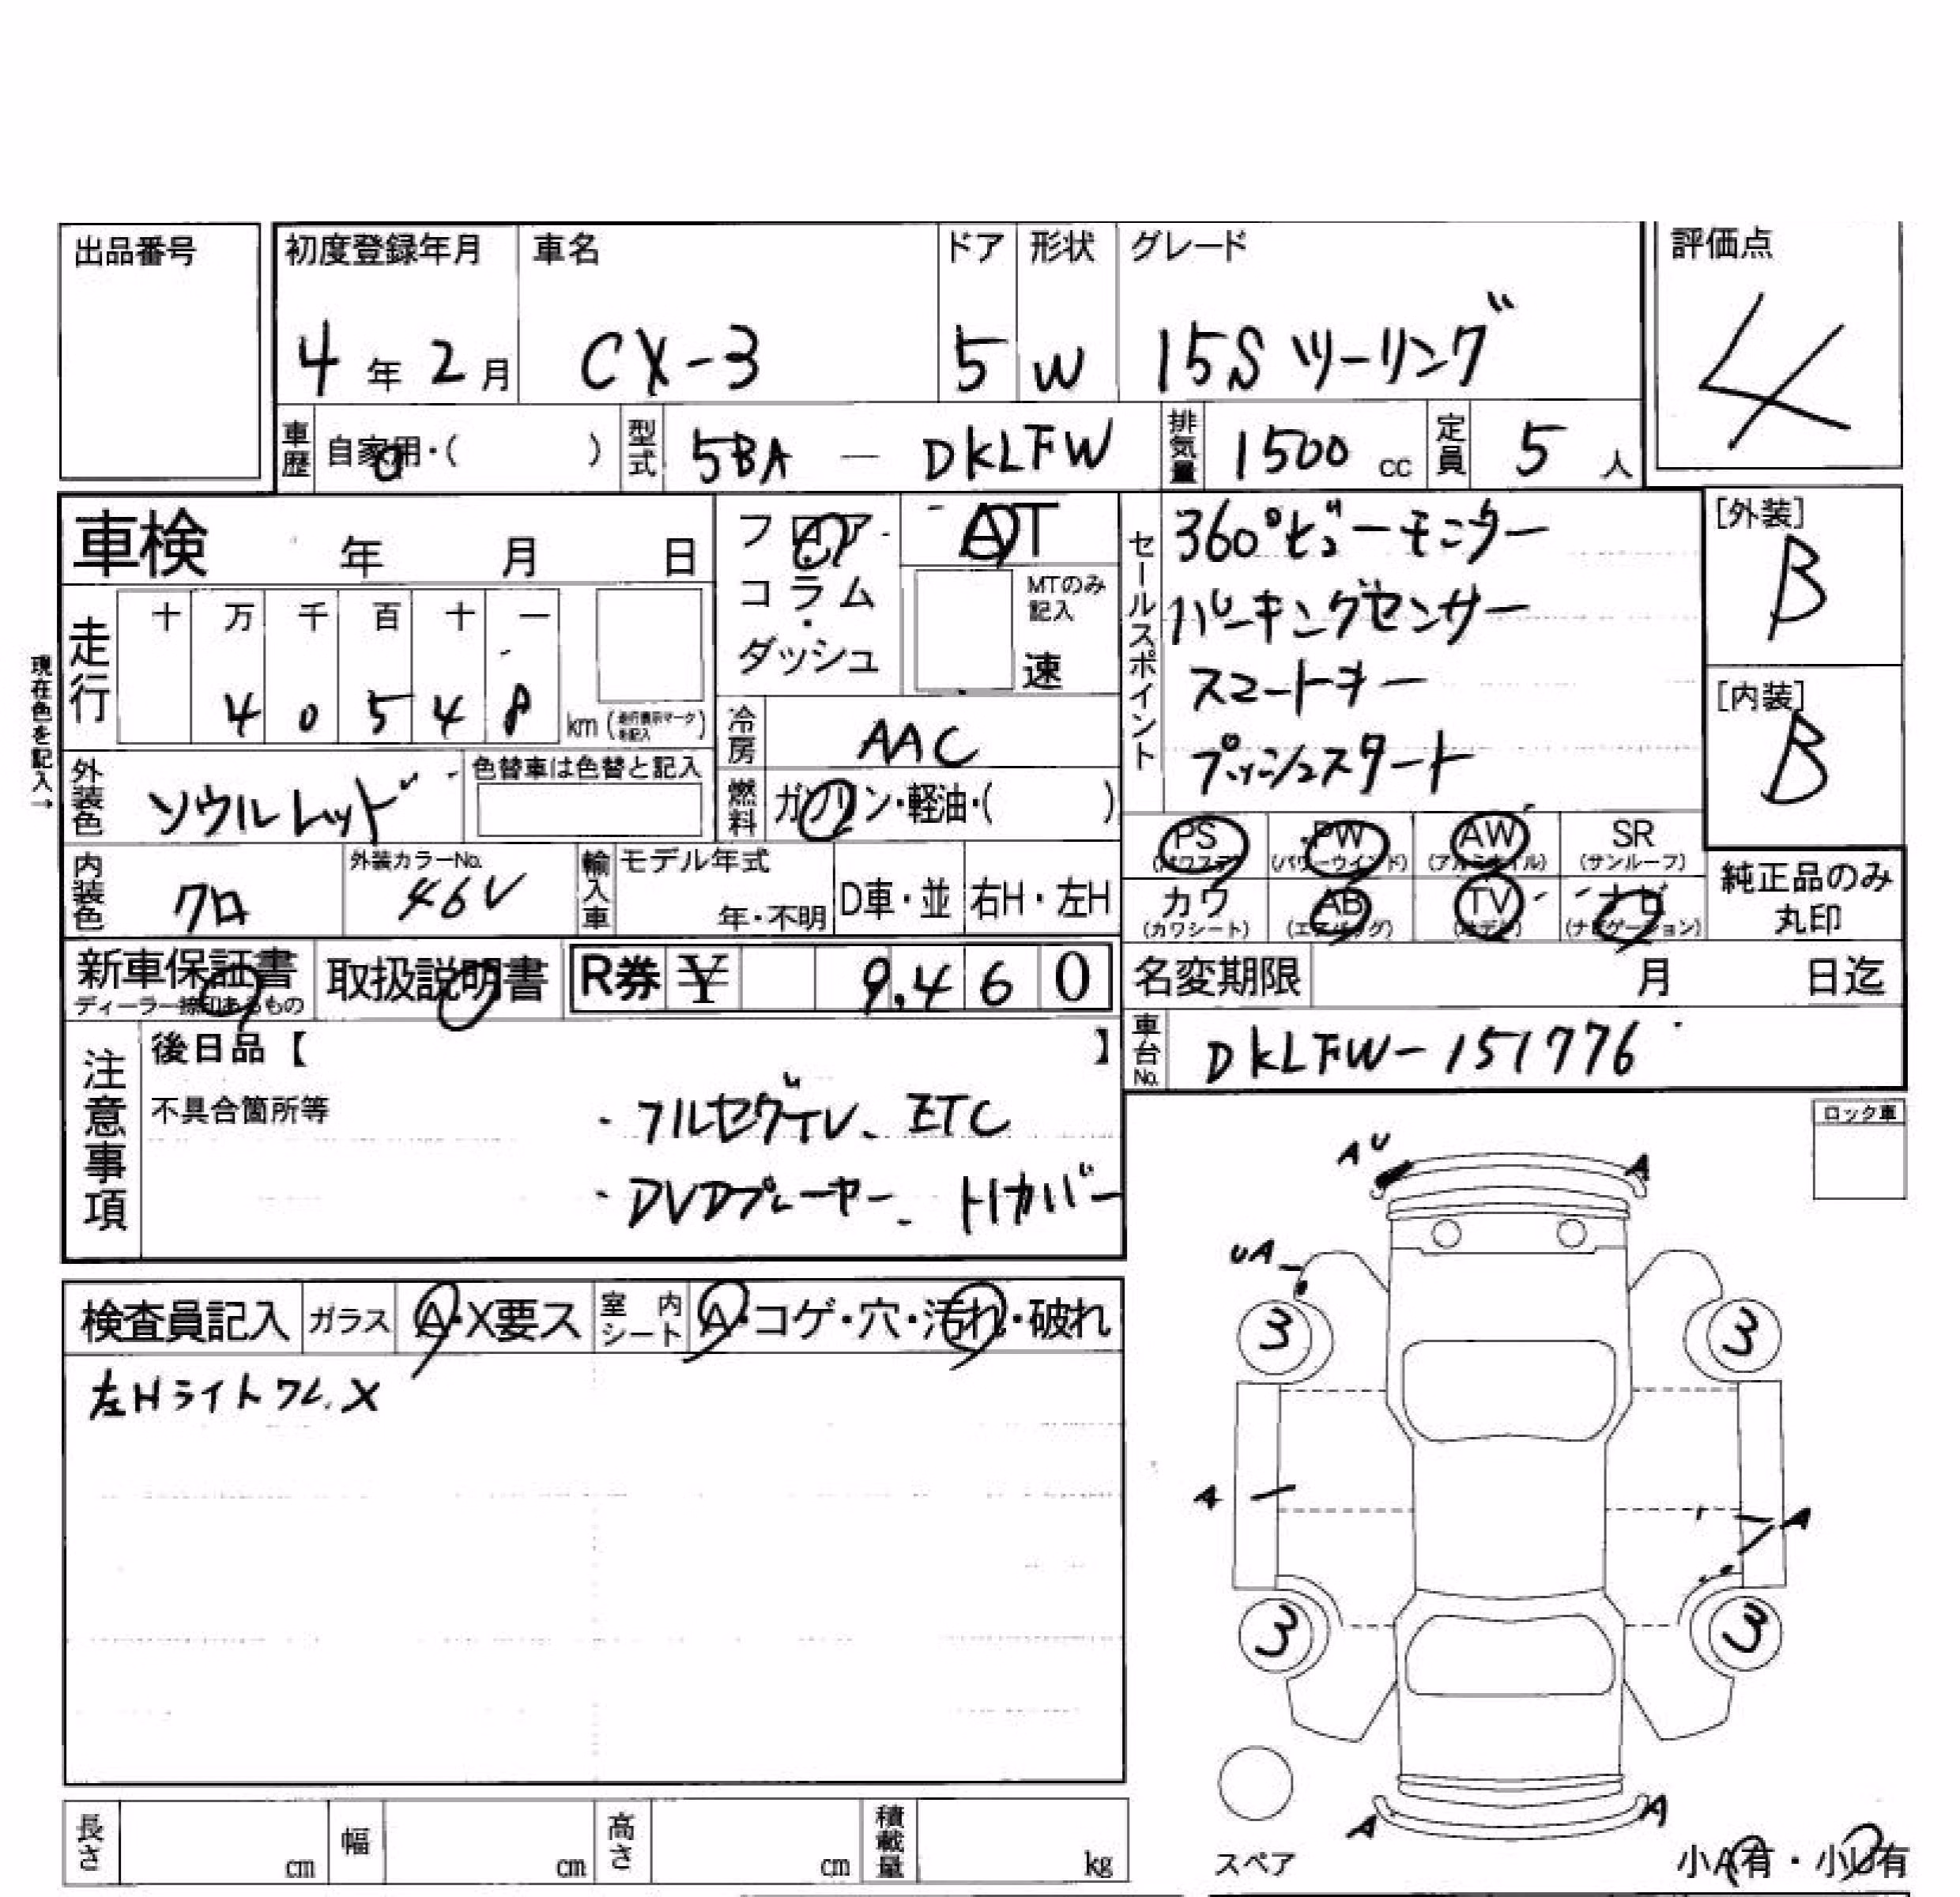 出品番号
初度登録年月 車名 ドア 形状 グレード 評価点
4年2月 CX-3 5 W 15Sツーリング 4
車歴 自家用・( ) 型式 5BA — DKLFW 排気量 1500 cc 定員 5 人
車検 年 月 日
フロア AT
コラム・
ダッシュ
MTのみ
記入
速
セールスポイント
360°ビューモニター
パーキングセンサー
スマートキー
プッシュスタート
[外装]
B
[内装]
B
現在色を記入→
走行 十 万 千 百 十 一
4 0 5 4 8 km (走行表示マークを記入)
冷房 AAC
外装色 ソウルレッド 色替車は色替と記入
燃料 ガソリン・軽油・( )
PS (パワステ) PW (パワーウインド) AW (アルミホイル) SR (サンルーフ)
カワ (カワシート) AB (エアバッグ) TV ナビ (ナビゲーション)
純正品のみ
丸印
内装色 クロ 外装カラーNo. 46V 輸入車 モデル年式 年・不明 D車・並 右H・左H
新車保証書 取扱説明書 R券 ¥ 9,460
ディーラー捺印あるもの
名変期限 月 日迄
車台No. DKLFW-151776
注意事項
後日品【 】
不具合箇所等
・フルセグTV、ETC
・DVDプレーヤー、トノカバー
ロック車
検査員記入 ガラス A・X要ス 室内シート A・コゲ・穴・汚れ・破れ
左Hライトワレ X
AU A
UA
3 3
A A
3 3
A A
スペア 小A有・小U有
長さ cm 幅 cm 高さ cm 積載量 kg